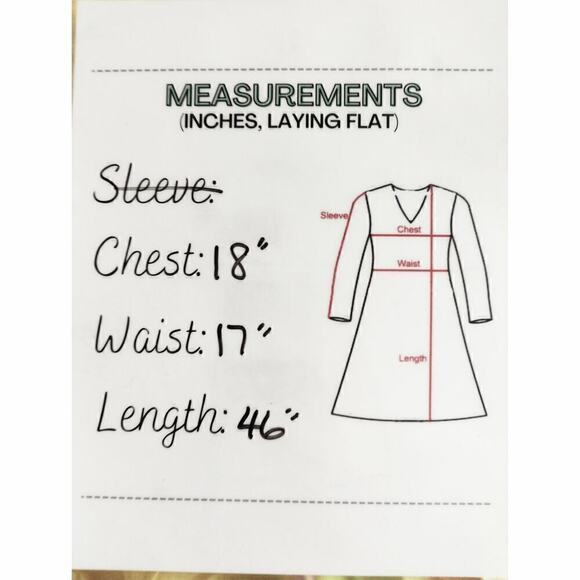 MEASUREMENTS
(INCHES, LAYING FLAT)
Sleeve:
Chest: 18"
Waist: 17"
Length: 46"
Sleeve
Chest
Waist
Length